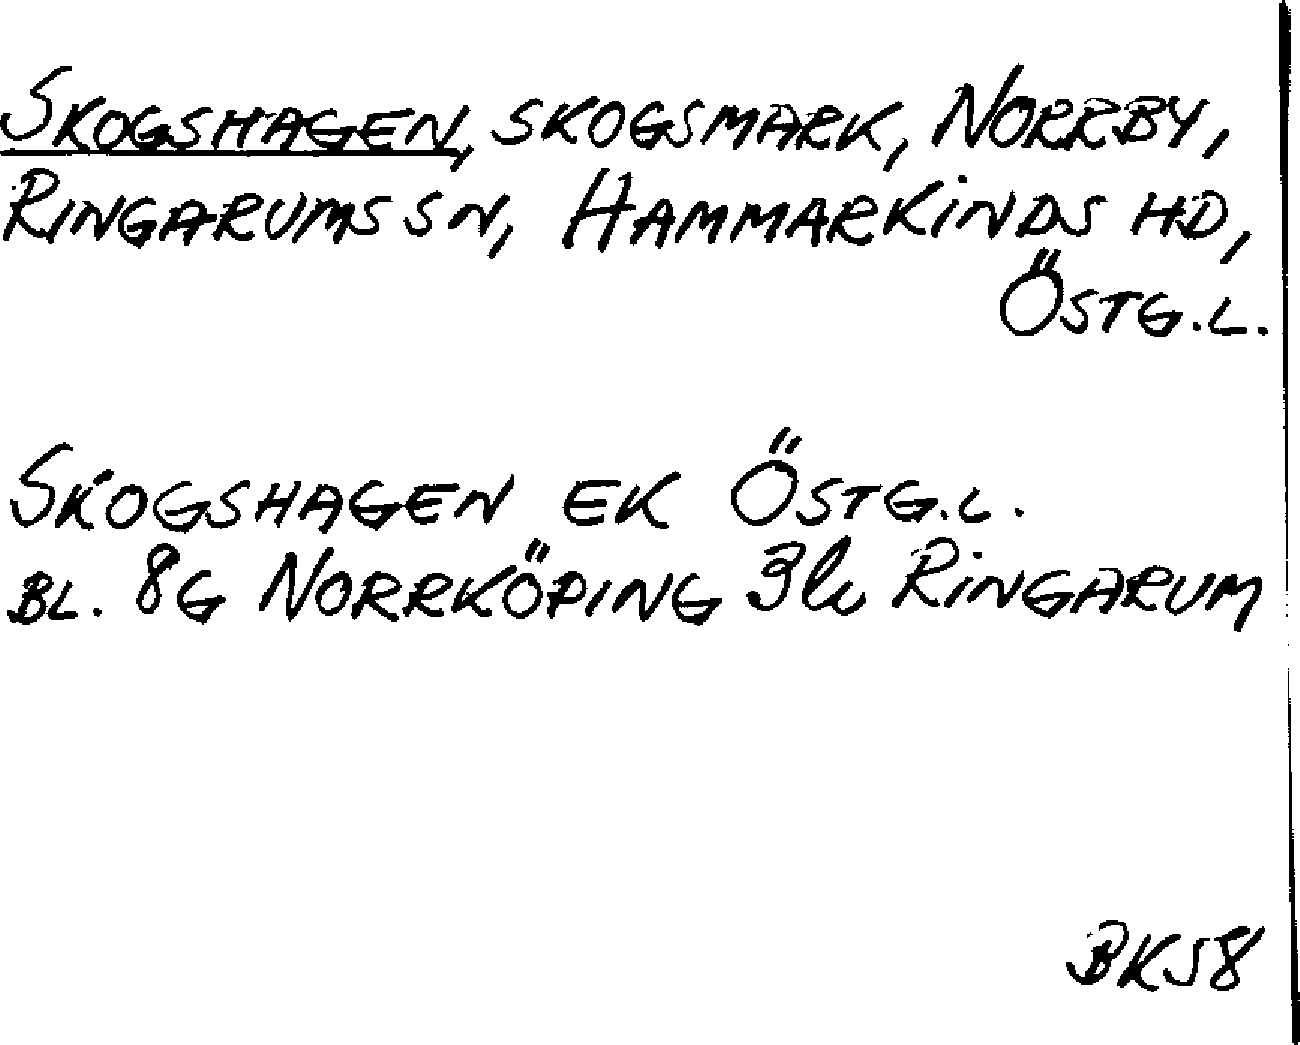 SKOGSHAGEN, SKOGSMARK, NORRBY,
RINGARUMS SN, HAMMARKINDS HD,
ÖSTG.L.
SKOGSHAGEN EK ÖSTG.L.
BL. 8G NORRKÖPING RINGARUM
BK58